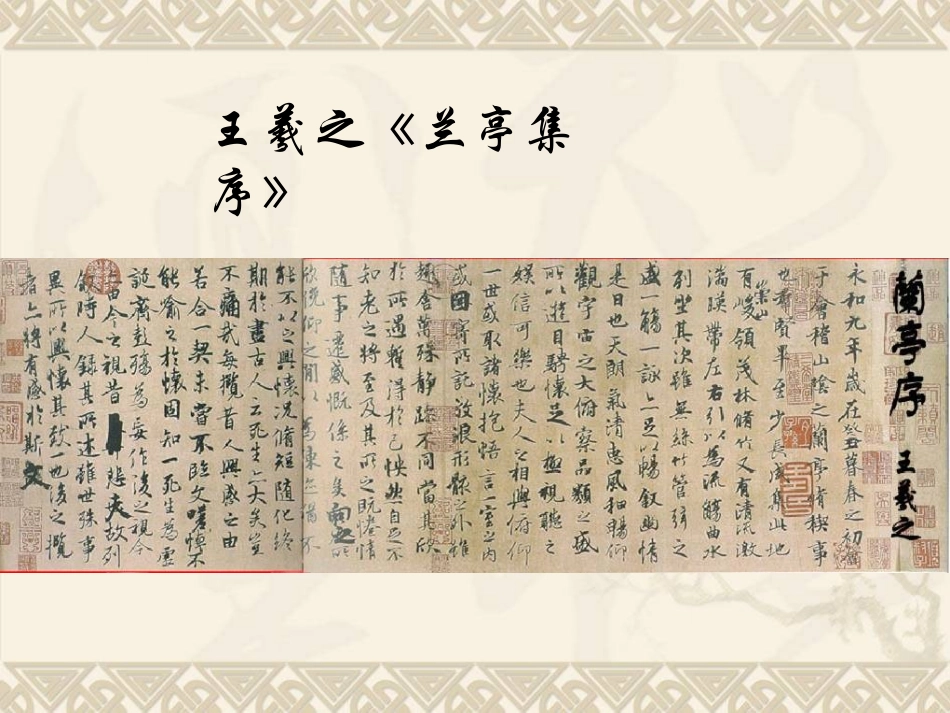 王羲之《兰亭集
序》
蘭亭序 王羲之
永和九年歲在癸丑暮春之初
于會稽山陰之蘭亭脩稧事
也羣賢畢至少長咸集此地
有崇山峻領茂林脩竹又有清流激
湍暎帶左右引以為流觴曲水
列坐其次雖無絲竹管弦之
盛一觴一詠亦足以暢叙幽情
是日也天朗氣清惠風和暢仰
觀宇宙之大俯察品類之盛
所以遊目騁懷足以極視聽之
娛信可樂也夫人之相與俯仰
一世或取諸懷抱悟言一室之內
或因寄所託放浪形骸之外雖
趣舍萬殊靜躁不同當其欣
於所遇暫得於己怏然自足不
知老之將至及其所之既惓情
隨事遷感慨係之矣向之所
欣俛仰之間以為陳迹猶不
能不以之興懷況脩短隨化終
期於盡古人云死生亦大矣豈
不痛哉每攬昔人興感之由
若合一契未嘗不臨文嗟悼不
能喻之於懷固知一死生為虛
誕齊彭殤為妄作後之視今
亦由今之視昔悲夫故列
敘時人錄其所述雖世殊事
異所以興懷其致一也後之攬
者亦將有感於斯文